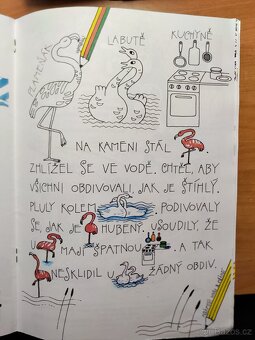 PLAMEŇÁK
LABUTĚ
KUCHYNĚ
NA KAMENI STÁL
ZHLÍŽEL SE VE VODĚ. CHTĚL, ABY
VŠICHNI OBDIVOVALI, JAK JE ŠTÍHLÝ.
PLULY KOLEM PODIVOVALY
SE, JAK JE HUBENÝ. USOUDILY, ŽE
U MAJÍ ŠPATNOU A TAK
NESKLIDIL U ŽÁDNÝ OBDIV.